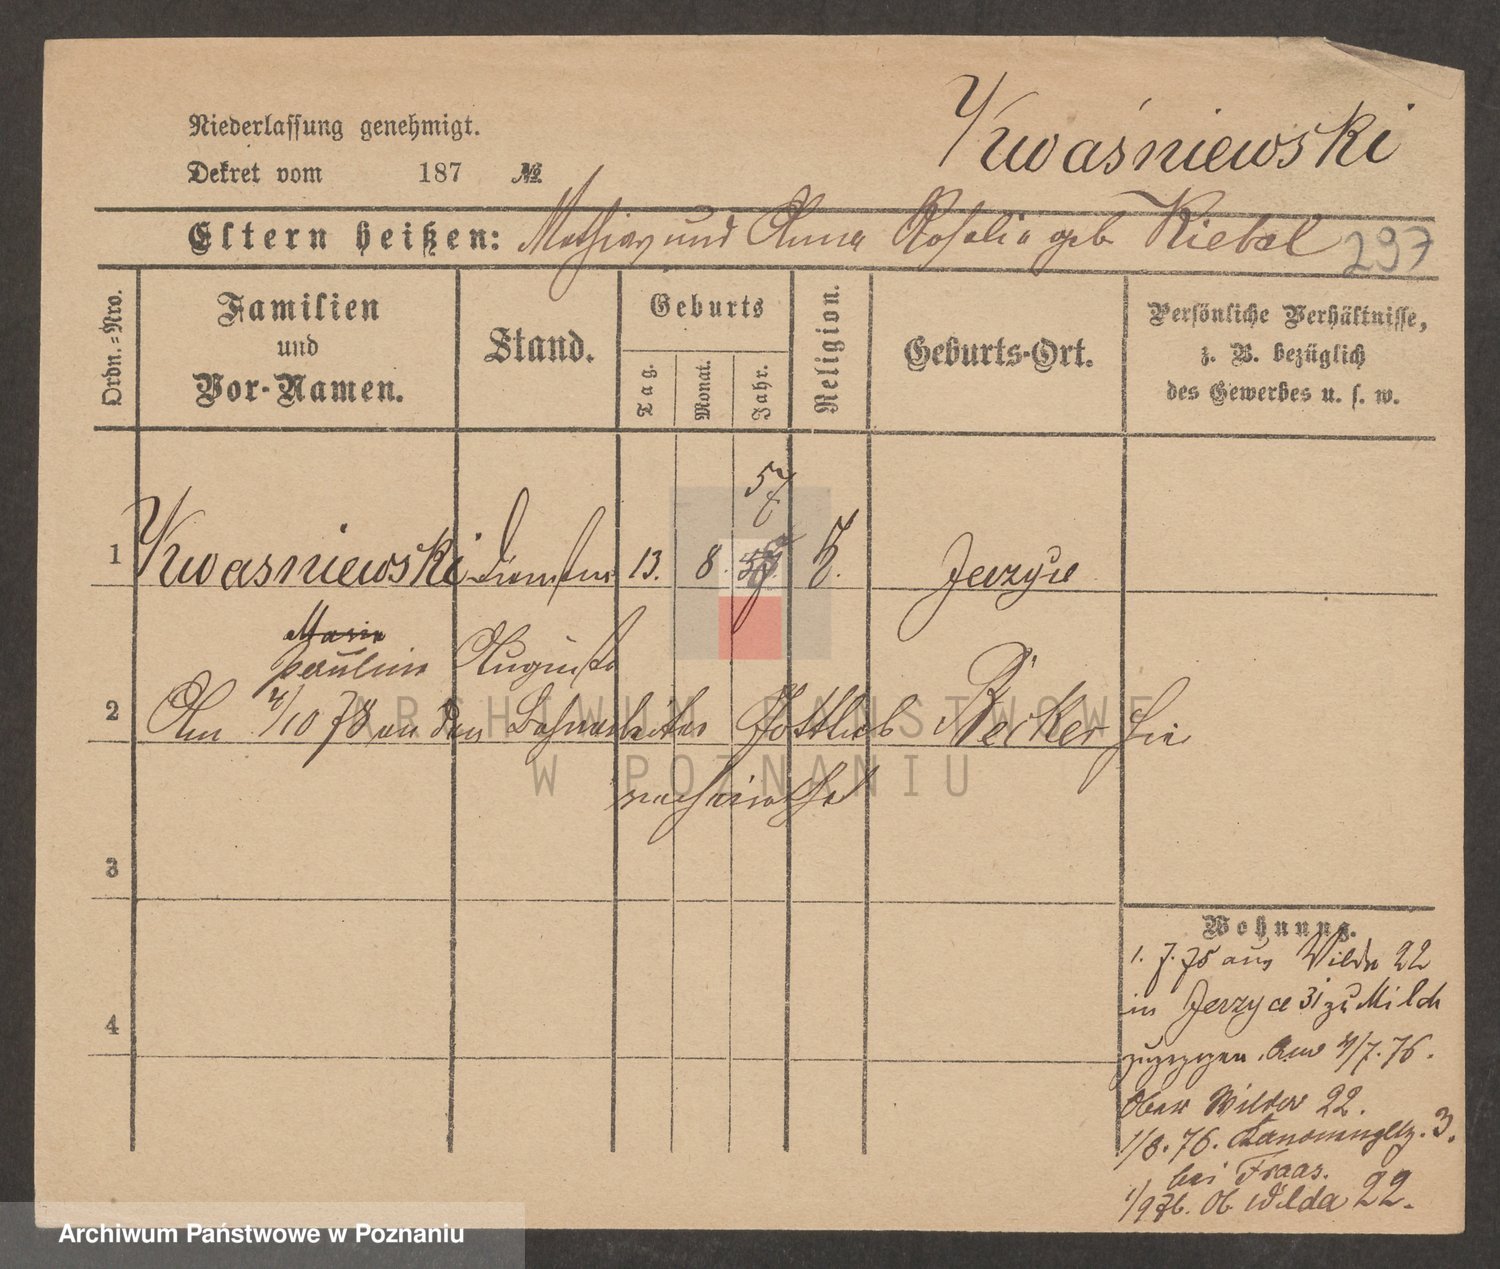 Niederlassung genehmigt.
Kwaśniewski
Dekret vom 187 №
Eltern heißen: Mathias und Anna Rosalia geb. Riebal
297
Ordn.=Nro.
Familien
und
Vor-Namen.
Stand.
Geburts
Tag.
Monat.
Jahr.
Religion.
Geburts-Ort.
Persönliche Verhältnisse,
z. B. bezüglich
des Gewerbes u. s. w.
57
1 Kwasniewski 13. 8. Jerzyce
Marie
Pauline Auguste
2 Am /10 78 an den Bahnarbeiter Gottlieb Becker hier
verheirathet
3
4
Wohnung.
1. 7. 75 aus Wilda 22
in Jerzyce 31 zu Milch
zugezogen. Am /7. 76.
Ober Wilda 22.
1/8. 76. 3.
bei Fraas.
1/9 76. Ob. Wilda 22.
ARCHIWUM PAŃSTWOWE
W POZNANIU
Archiwum Państwowe w Poznaniu